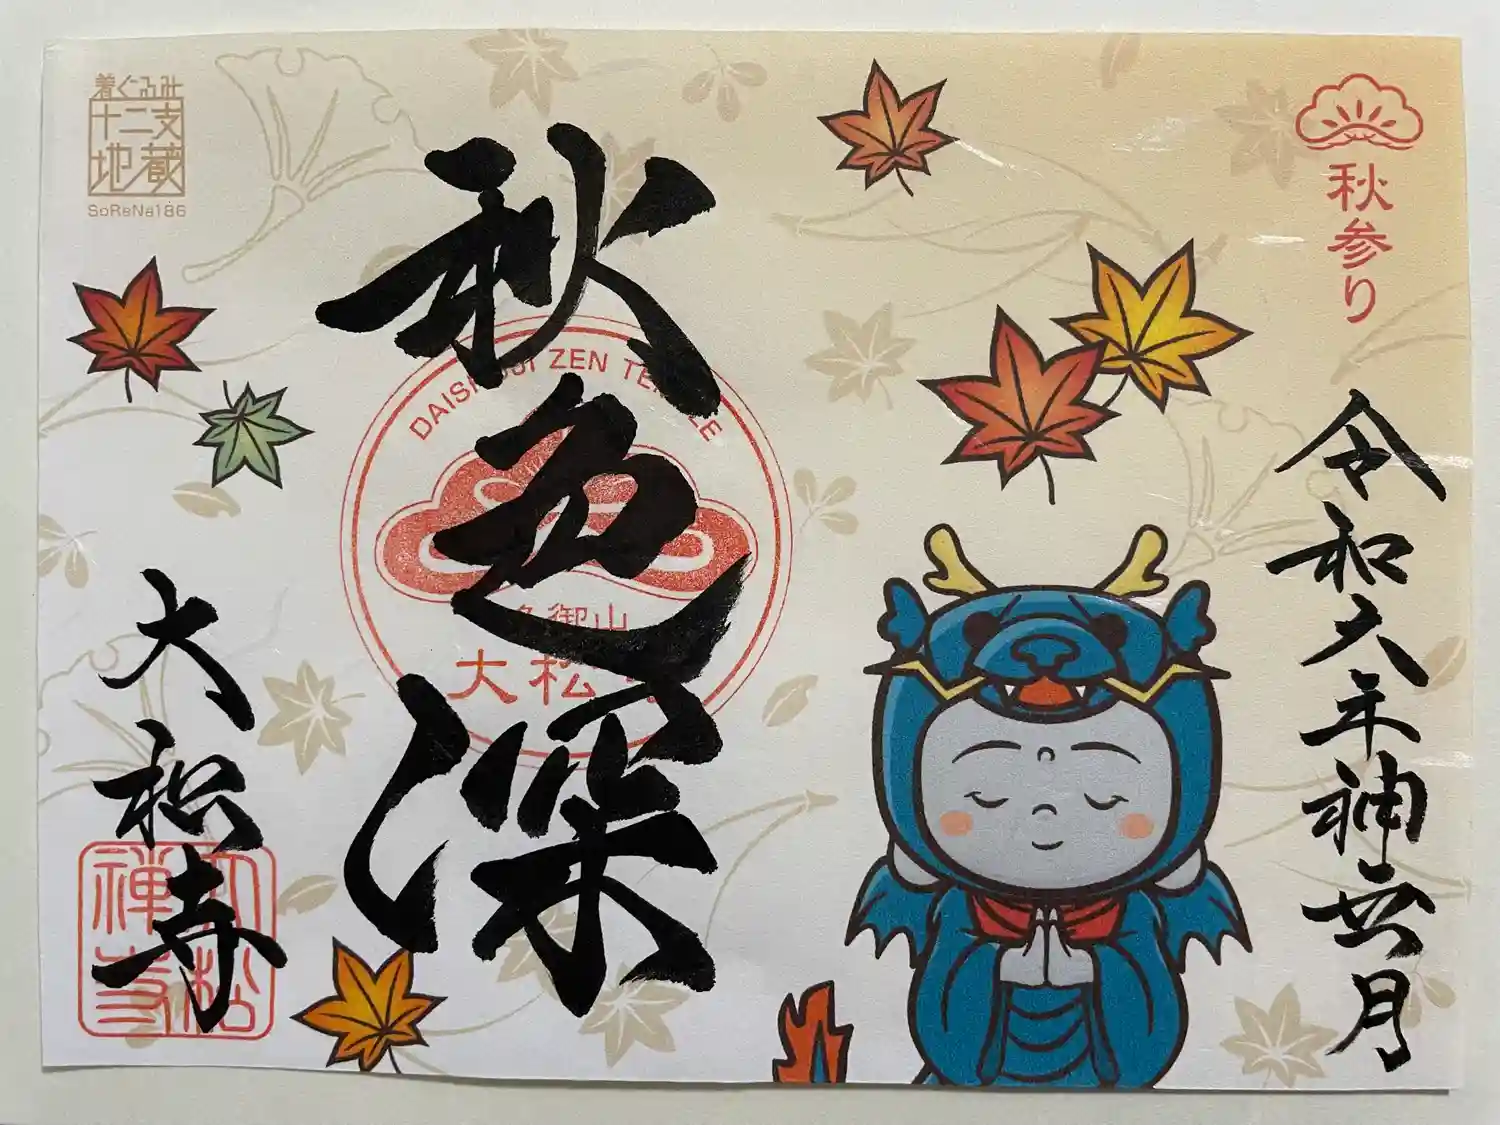 秋参り
令和六年神無月
秋色深
ZEN
御山
大松
大松寺
禅寺
着ぐるみ
十二支
地蔵
SoReNa186